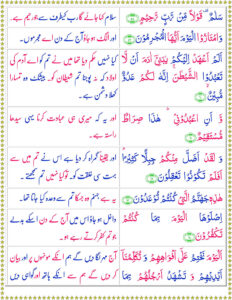 سَلٰمٌ قَوْلًا مِّنْ رَّبٍّ رَّحِيْمٍ ﴿۵۸﴾
وَامْتَازُوا الْيَوْمَ اَيُّهَا الْمُجْرِمُوْنَ ﴿۵۹﴾
اَلَمْ اَعْهَدْ اِلَيْكُمْ يٰبَنِيْۤ اٰدَمَ اَنْ لَّا
تَعْبُدُوا الشَّيْطٰنَ اِنَّهٗ لَكُمْ عَدُوٌّ
مُّبِيْنٌ ﴿۶۰﴾
وَّاَنِ اعْبُدُوْنِيْ هٰذَا صِرَاطٌ
مُّسْتَقِيْمٌ ﴿۶۱﴾
وَلَقَدْ اَضَلَّ مِنْكُمْ جِبِلًّا كَثِيْرًا
اَفَلَمْ تَكُوْنُوْا تَعْقِلُوْنَ ﴿۶۲﴾
هٰذِهٖ جَهَنَّمُ الَّتِيْ كُنْتُمْ تُوْعَدُوْنَ ﴿۶۳﴾
اِصْلَوْهَا الْيَوْمَ بِمَا كُنْتُمْ
تَكْفُرُوْنَ ﴿۶۴﴾
اَلْيَوْمَ نَخْتِمُ عَلٰۤى اَفْوَاهِهِمْ وَتُكَلِّمُنَاۤ
اَيْدِيْهِمْ وَتَشْهَدُ اَرْجُلُهُمْ بِمَا
سلام کہا جائے گا رب کیطرف سے جو رحیم ہے۔
اور الگ ہو جاؤ آج کے دن اے مجرموں۔
کیا نہیں حکم دیا تھا میں نے تم کو اے آدم کی
اولاد کہ نہ پوجنا تم شیطان کو۔ بیشک وہ تمہارا
کھلا دشمن ہے۔
اور یہ کہ میری ہی عبادت کرنا یہی سیدھا
راستہ ہے۔
اور یقیناً گمراہ کر دیا ہے اس نے تم میں سے
بہت سی خلقت کو۔ تو کیا نہیں تم سمجھتے۔
یہ ہے جہنم وہ جسکا تم سے وعدہ کیا جاتا تھا۔
داخل ہو جاؤ اس میں آج کے دن اسکے بدلے
جو تم کفر کرتے رہے ہو۔
آج مہر لگا دیں گے ہم انکے مونہوں پر اور بیان
کر دیں گے ہم سے انکے ہاتھ اور گواہی دیں